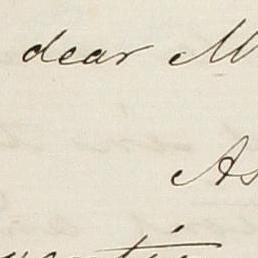 dear M
As